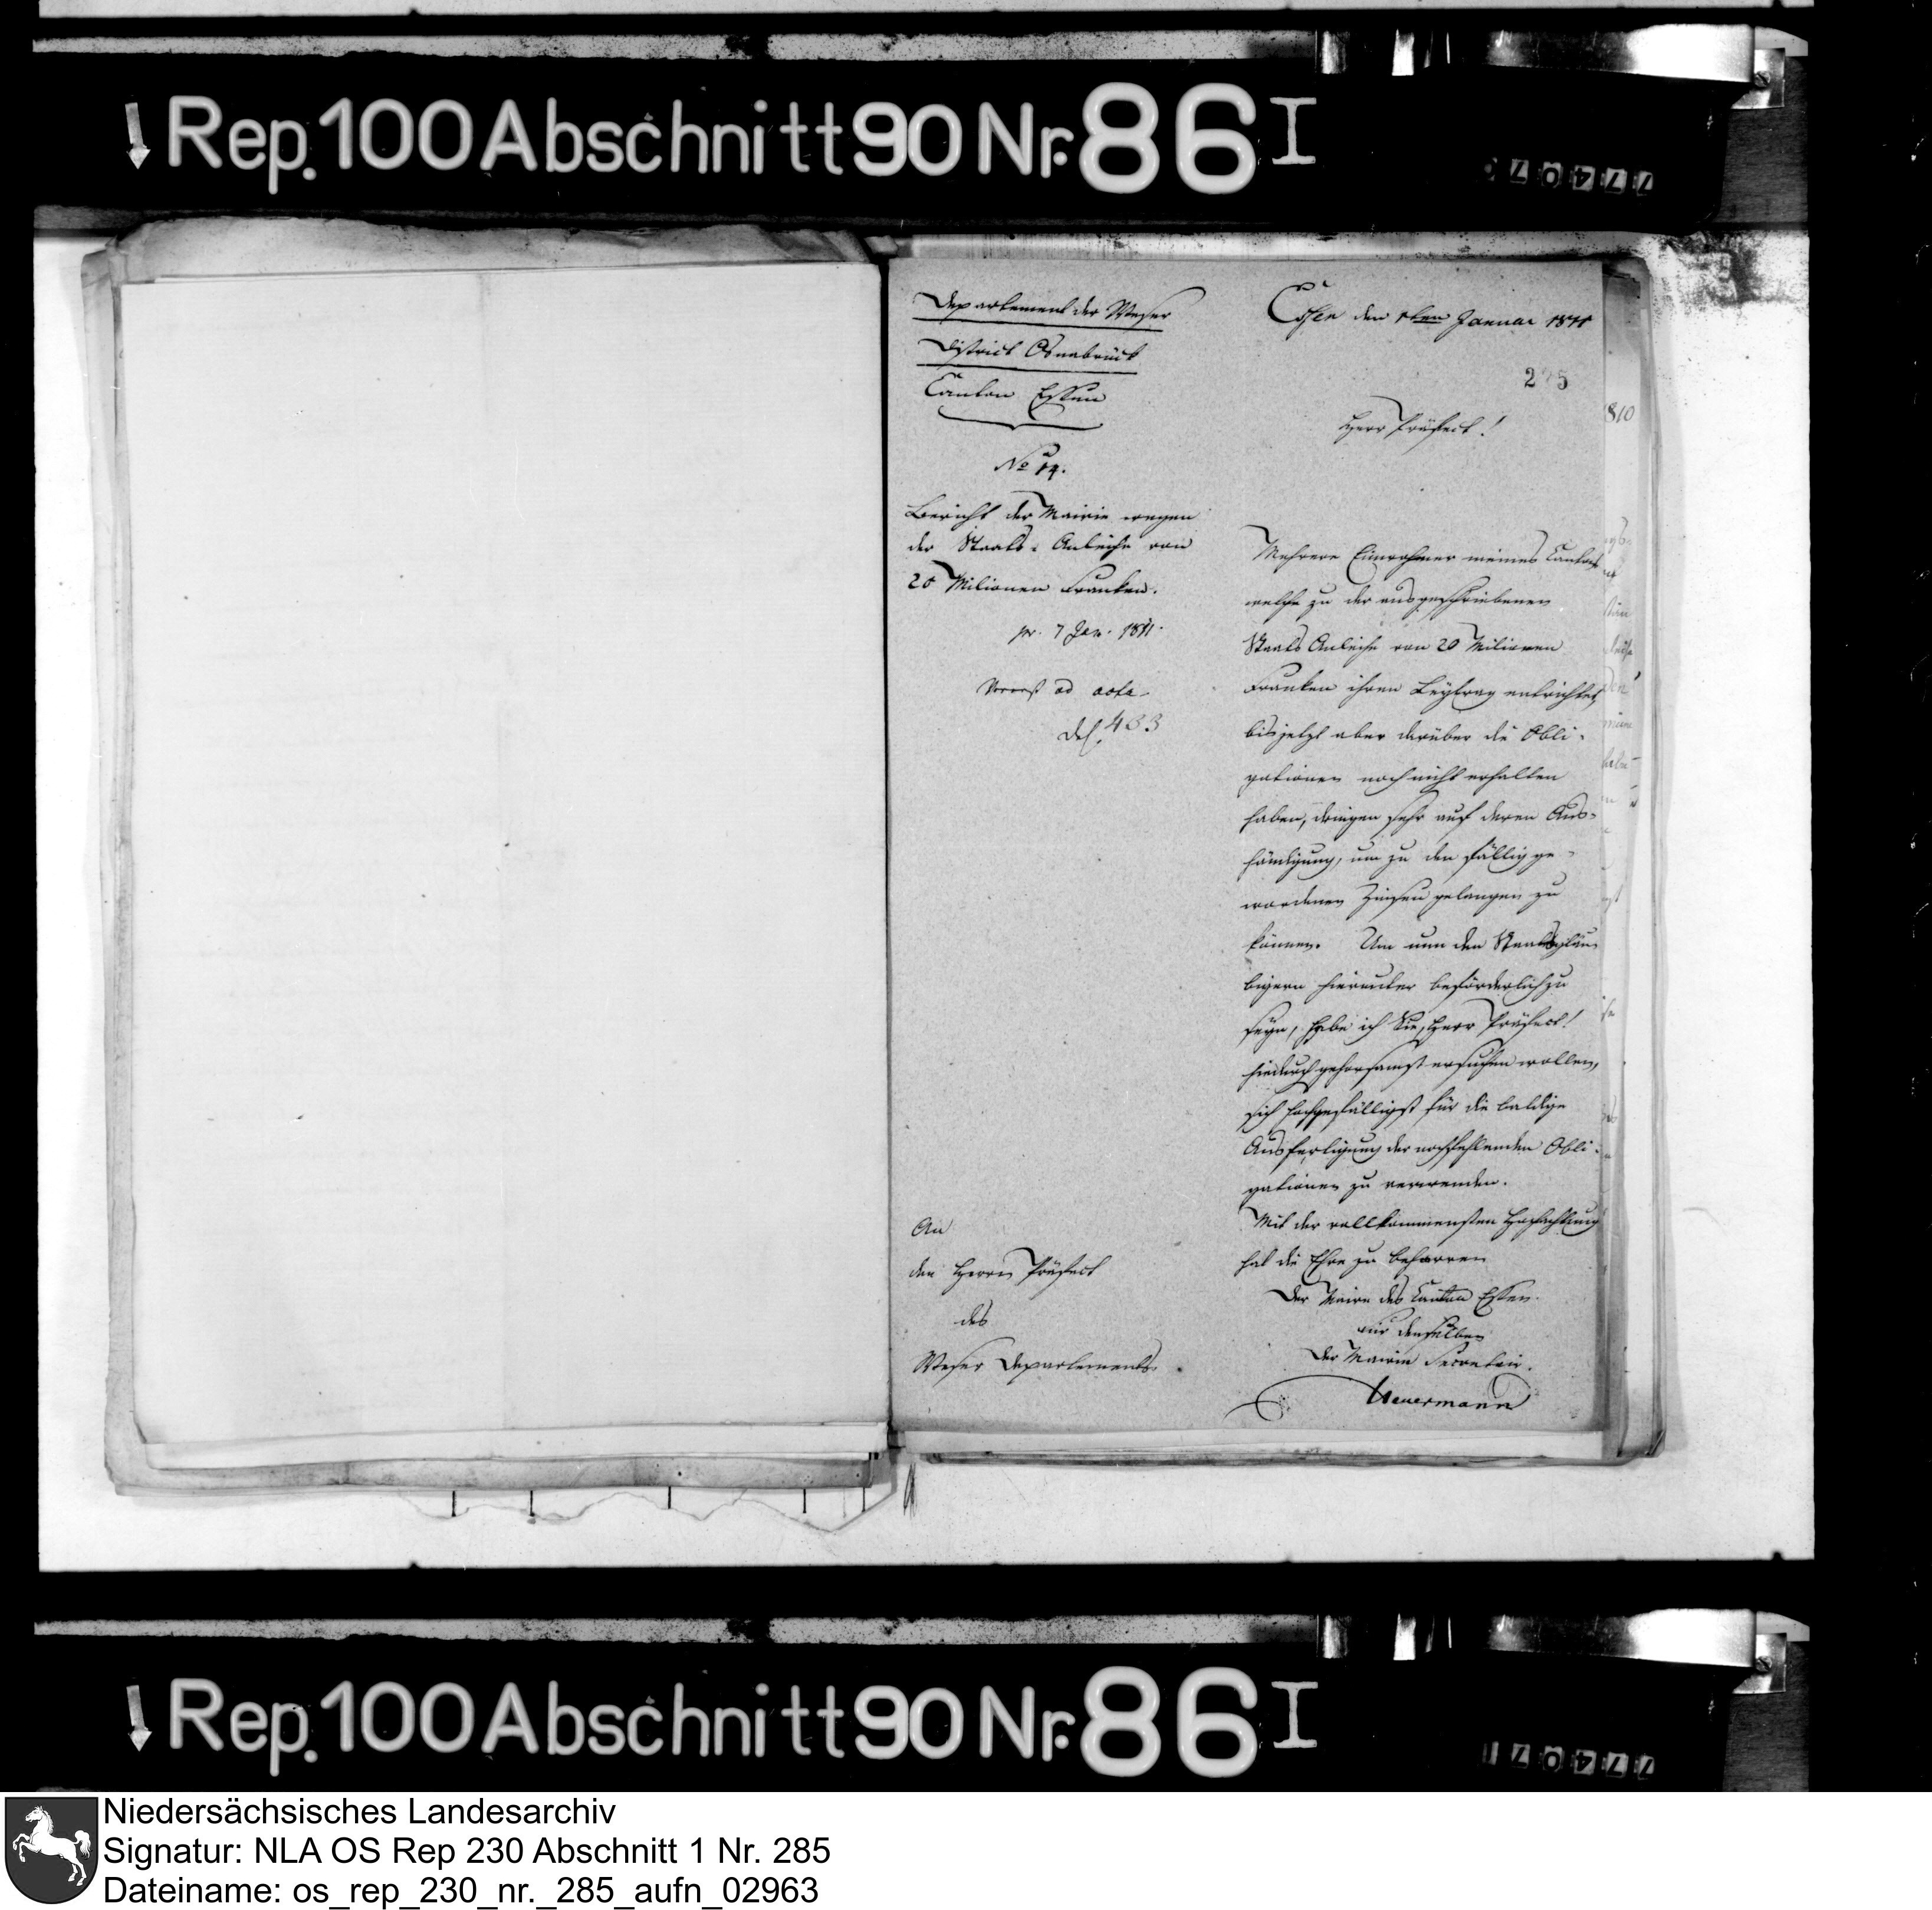 Rep. 100 Abschnitt 90 Nr. 86 I
77407
Departement der Weser
District Osnabrück
Canton Essen
No 14.
Bericht der Mairie wegen
der Staats-Anleihe von
20 Milionen Franken.
pr. 7 Jan. 1811.
ad acta
483
An
den Herrn Präfect
des
Weser Departements.
Essen den 1ten Januar 1811
Herr Präfect!
Mehrere Einwohner meines Cantons
welche zu der ausgeschriebenen
Staats Anleihe von 20 Milionen
Franken ihren Beytrag entrichtet,
bis jetzt aber darüber die Obli-
gationen noch nicht erhalten
haben, dringen sehr auf deren Aus-
händigung, um zu den fällig ge-
wordenen Zinsen gelangen zu
können. Um nun den Staatsgläu-
bigern hierunter beförderlich zu
seyn, habe ich Sie, Herr Präfect!
hiedurch gehorsamst ersuchen wollen,
sich hochgefälligst für die baldige
Ausfertigung der noch fehlenden Obli-
gationen zu verwenden.
Mit der vollkommensten Hochachtung
hat die Ehre zu beharren
Der Maire des Canton Essen.
für denselben
Der Mairie Secretair.
Meuermann
810
Rep. 100 Abschnitt 90 Nr. 86 I
77407
Niedersächsisches Landesarchiv
Signatur: NLA OS Rep 230 Abschnitt 1 Nr. 285
Dateiname: os_rep_230_nr._285_aufn_02963